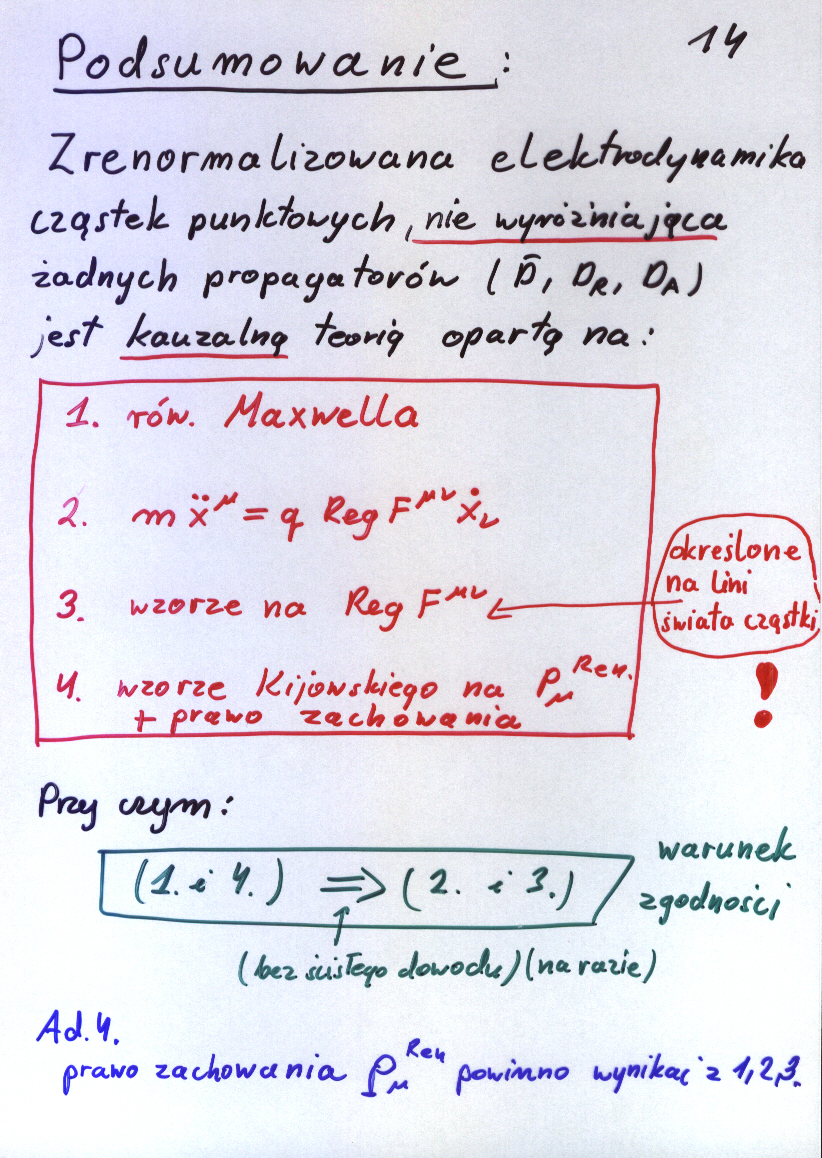 14
Podsumowanie:
Zrenormalizowana elektrodynamika
cząstek punktowych, nie wyróżniająca
żadnych propagatorów (D̄, D_R, D_A)
jest kauzalną teorią opartą na:
1. rów. Maxwella
2. m ẍ^μ = q Reg F^{μν} ẋ_ν
3. wzorze na Reg F^{μν}
określone
na lini
świata cząstki
!
4. wzorze Kijowskiego na P_μ^{Ren.}
+ prawo zachowania
Przy czym:
(1. i 4.) ⇒ (2. i 3.)
warunek
zgodności
(bez ścisłego dowodu) (na razie)
Ad. 4.
prawo zachowania P_μ^{Ren} powinno wynikać z 1,2,3.